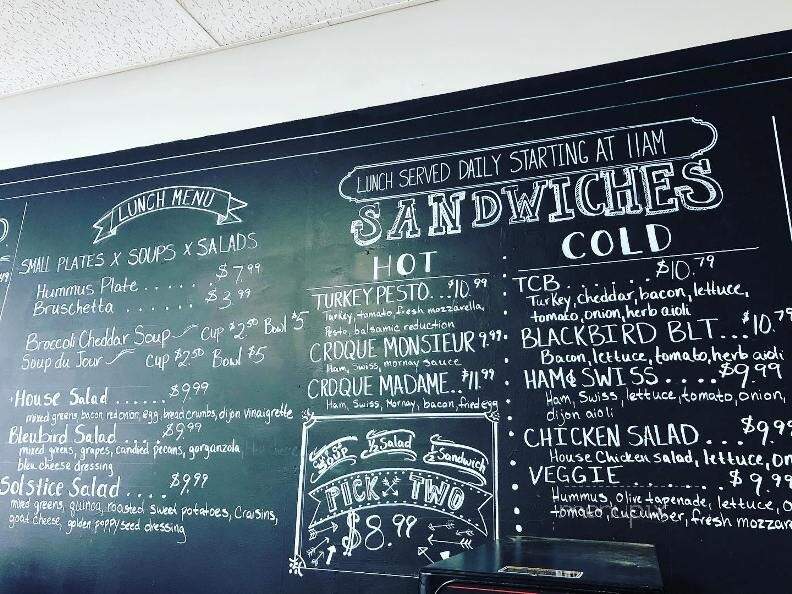 LUNCH MENU
SMALL PLATES X SOUPS X SALADS
Hummus Plate ...... $7.99
Bruschetta ...... $3.99
Broccoli Cheddar Soup Cup $2.50 Bowl $5
Soup du Jour Cup $2.50 Bowl $5
House Salad ...... $9.99
mixed greens, bacon, red onion, egg, bread crumbs, dijon vinaigrette
Bleubird Salad ..... $9.99
mixed greens, grapes, candied pecans, gorganzola,
bleu cheese dressing
Solstice Salad .... $9.99
mixed greens, quinoa, roasted sweet potatoes, Craisins,
goat cheese, golden poppyseed dressing
LUNCH SERVED DAILY STARTING AT 11AM
SANDWICHES
HOT
TURKEY PESTO...$10.99
Turkey, tomato, fresh mozzarella,
Pesto, balsamic reduction
CROQUE MONSIEUR 9.99
Ham, Swiss, mornay sauce
CROQUE MADAME..$11.99
Ham, Swiss, Mornay, bacon, fried egg
1/2 Salad
1/2 Sandwich
SOUP
PICK TWO
$8.99
COLD
TCB ....... $10.79
Turkey, cheddar, bacon, lettuce,
tomato, onion, herb aioli
BLACKBIRD BLT...$10.79
Bacon, lettuce, tomato, herb aioli
HAM & SWISS ..... $9.99
Ham, Swiss, lettuce, tomato, onion,
dijon aioli
CHICKEN SALAD ... $9.99
House Chicken salad, lettuce, on
VEGGIE ....... $9.99
Hummus, olive tapenade, lettuce, o
tomato, cucumber, fresh mozzare